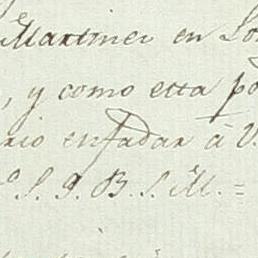 Martinez en Lon
, y como esta po
rio enfadar à V.
S. Q. B. S. M. =